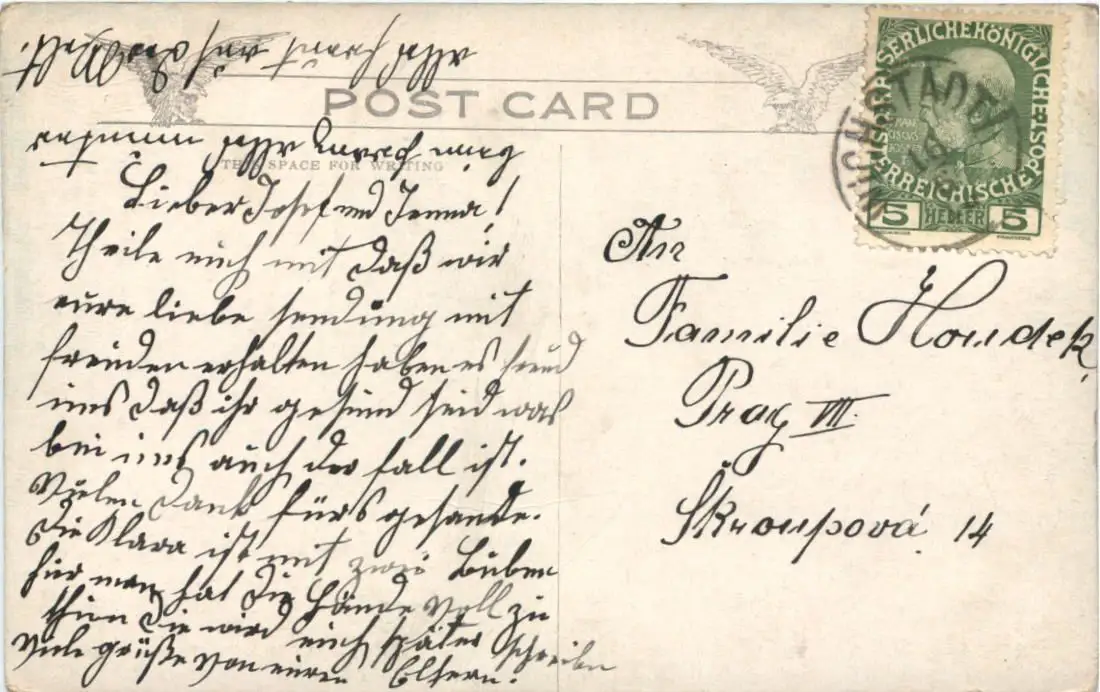 POST CARD
THIS SPACE FOR WRITING
Lieber Josef und Jenna!
Theile euch mit daß wir
eure liebe sendung mit
freuden erhalten haben es freud
uns daß ihr gesund seid was
bei uns auch der fall ist.
Vielen Dank fürs gesante.
Die Klara ist mit zwei Buben
hier man hat die Hände voll zu
thun Sie wird euch später schreiben
Viele grüße von euren Eltern!
An
Familie Houdek
Prag VIII.
Škroupová 14
KAISERLICHEKÖNIGLICHE
ÖSTERREICHISCHE
5 HELLER 5